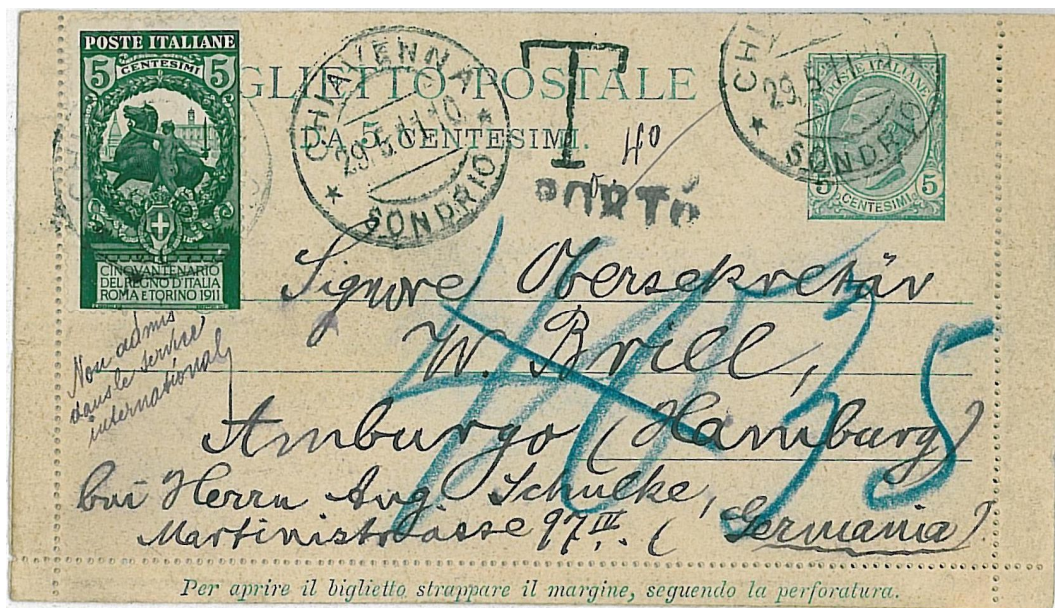 POSTE ITALIANE
5 CENTESIMI 5
CINQVANTENARIO
DEL REGNO D'ITALIA
ROMA E TORINO 1911
BIGLIETTO POSTALE
DA 5 CENTESIMI.
CHIAVENNA
29.5.11.10
SONDRIO
T
40
PORTO
CHI
29.5.11
SONDRIO
POSTE ITALIANE
5 CENTESIMI 5
Non admis
dans le service
international
Signore Obersekretär
W. Brill,
Amburgo (Hamburg)
bei Herrn Aug. Schulke,
Martinistrasse 97 IV. (Germania).
40 35
Per aprire il biglietto strappare il margine, seguendo la perforatura.